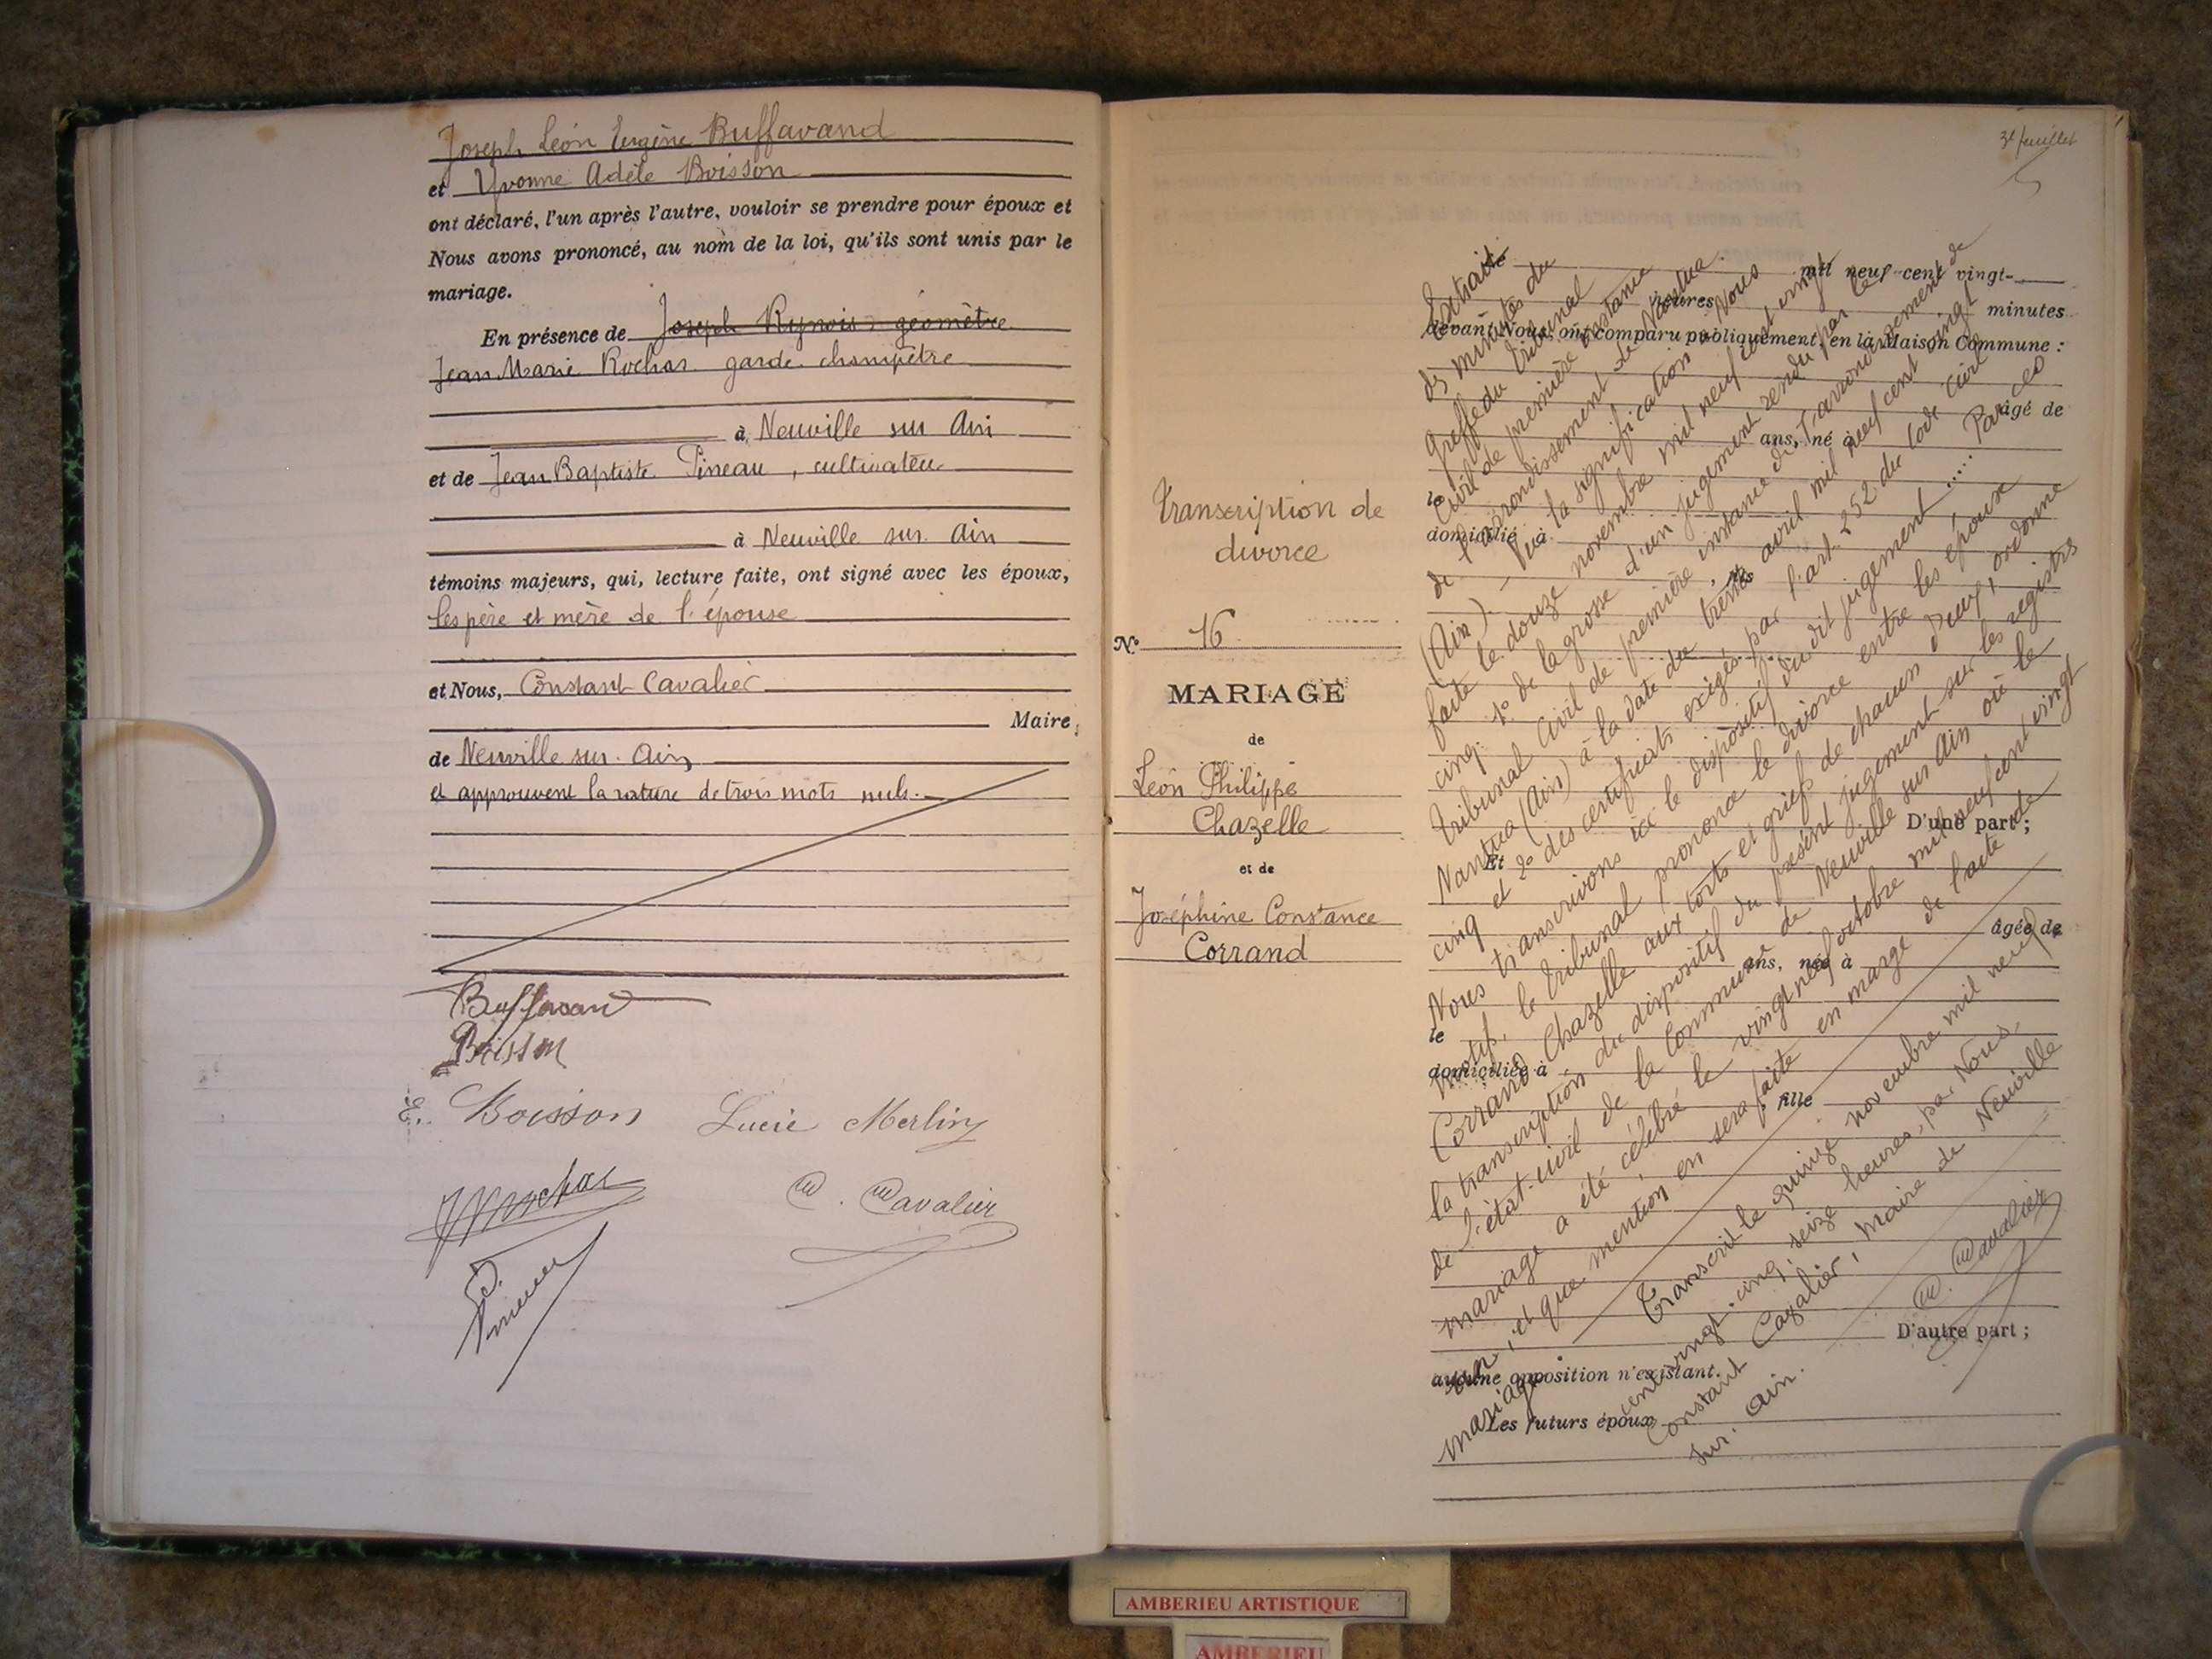 Joseph Léon Eugène Buffavand
et Yvonne Adèle Boisson
ont déclaré, l'un après l'autre, vouloir se prendre pour époux et
Nous avons prononcé, au nom de la loi, qu'ils sont unis par le
mariage.
En présence de Joseph géomètre
Jean Marie Rochas garde-champêtre
à Neuville sur Ain
et de Jean Baptiste Pineau, cultivateur
à Neuville sur Ain
témoins majeurs, qui, lecture faite, ont signé avec les époux,
les père et mère de l'épouse
et Nous, Constant Cavalier
Maire
de Neuville sur Ain
et approuvent la rature de trois mots nuls.
Buffavand
Boisson
E. Boisson Lucie Merlin
Rochas C. Cavalier
3e feuillet
Transcription de
divorce
N° 16
MARIAGE
de
Léon Philippe
Chazelle
et de
Joséphine Constance
Corrand
Le mil neuf cent vingt-
heures minutes
devant Nous, ont comparu publiquement, en la Maison Commune :
âgé de
ans, né à
le
domicilié à
fils
D'une part ;
Et
âgée de
ans, née à
le
domiciliée à
fille
D'autre part ;
aucune opposition n'existant.
Les futurs époux
Extrait
des minutes du
Greffe du Tribunal
Civil de première instance
de l'arrondissement de Nantua
(Ain). – Vu la signification à Nous
faite le douze novembre mil neuf cent vingt
cinq. 1° de la grosse d'un jugement rendu par le
Tribunal Civil de première instance de l'arrondissement de
Nantua (Ain) à la date du trente avril mil neuf cent vingt
cinq et 2° des certificats exigés par l'art. 252 du Code Civil
Nous transcrivons ici le dispositif du dit jugement ..... Par ces
motifs, le Tribunal prononce le divorce entre les époux
Corrand Chazelle aux torts et griefs de chacun d'eux, ordonne
la transcription du dispositif du présent jugement sur les registres
de l'état-civil de la Commune de Neuville sur Ain où le
mariage a été célébré le vingt neuf octobre mil neuf cent vingt
un, et que mention en sera faite en marge de l'acte de
mariage.
Transcrit le quinze novembre mil neuf
cent vingt-cinq, seize heures, par Nous
Constant Cavalier, Maire de Neuville
sur Ain.
C. Cavalier
AMBERIEU ARTISTIQUE
AMBERIEU